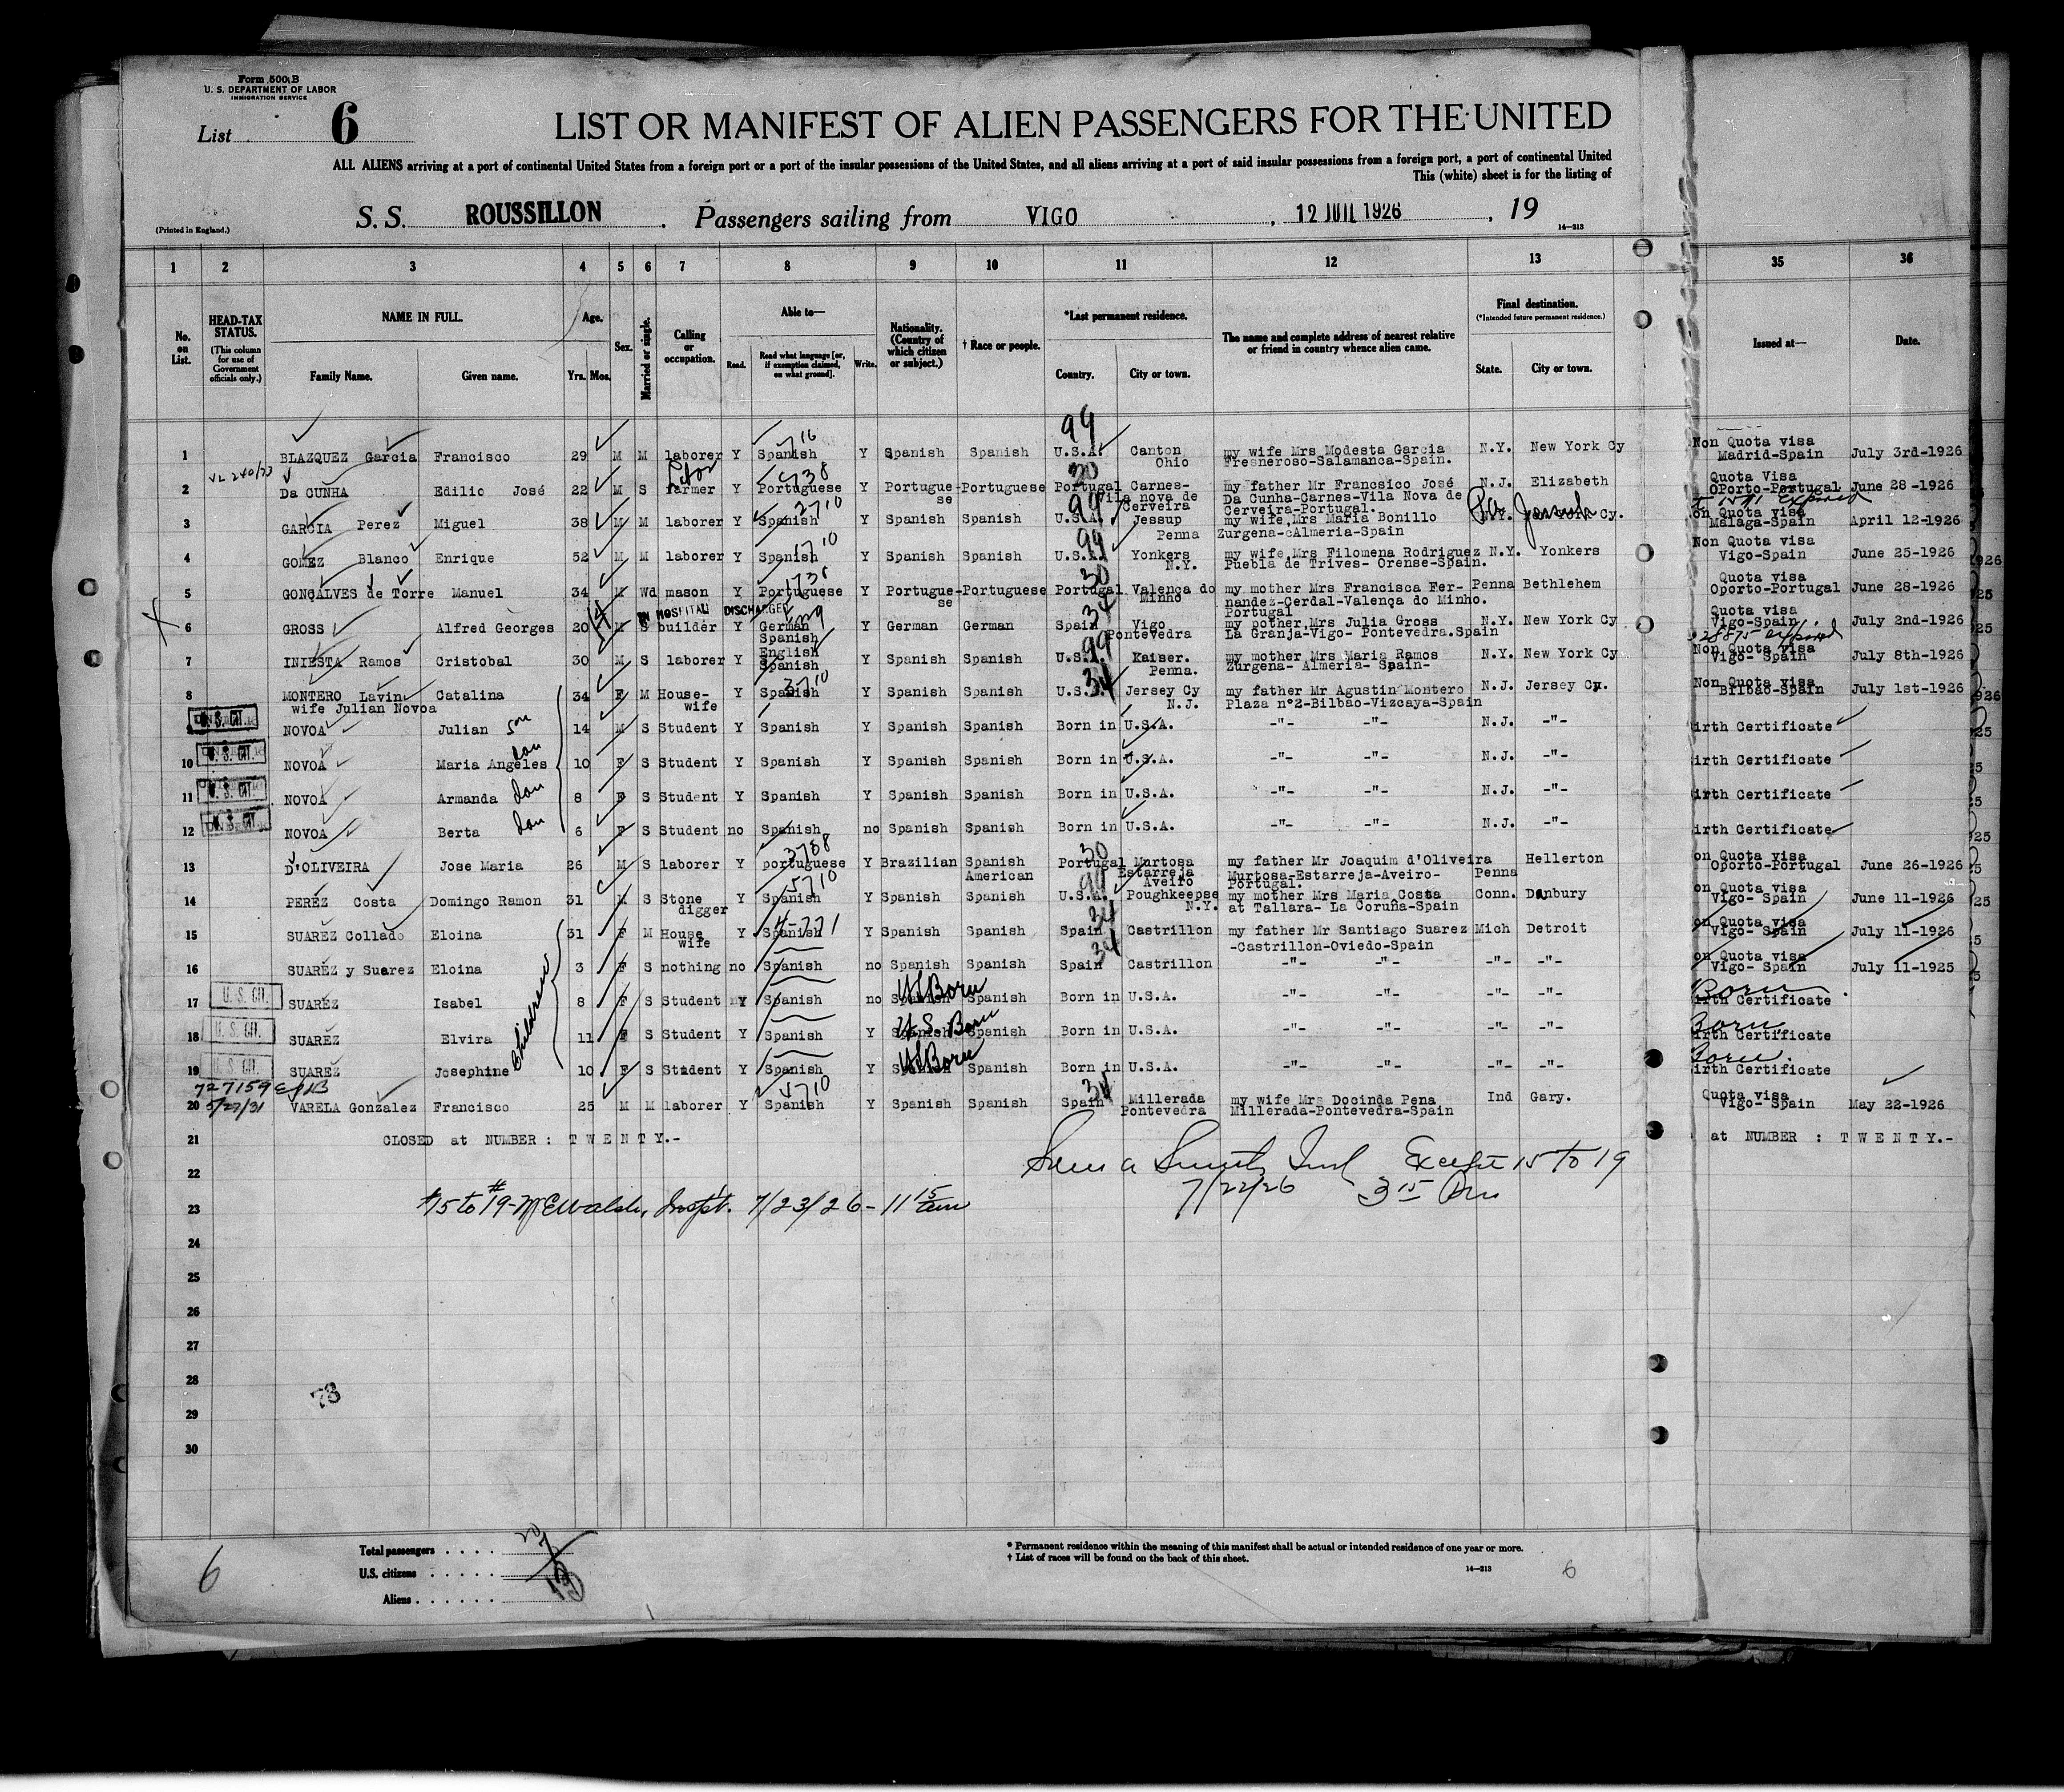 Form 500 B
U. S. DEPARTMENT OF LABOR
IMMIGRATION SERVICE
List 6
LIST OR MANIFEST OF ALIEN PASSENGERS FOR THE UNITED
ALL ALIENS arriving at a port of continental United States from a foreign port or a port of the insular possessions of the United States, and all aliens arriving at a port of said insular possessions from a foreign port, a port of continental United
This (white) sheet is for the listing of
S. S. ROUSSILLON . Passengers sailing from VIGO , 12 JUIL 1926 , 19
(Printed in England.)
14—213
1 2 3 4 5 6 7 8 9 10 11 12 13 35 36
No. on List.
HEAD-TAX STATUS.
(This column for use of Government officials only.)
NAME IN FULL.
Family Name. Given name.
Age.
Yrs. Mos.
Sex.
Married or single.
Calling or occupation.
Able to—
Read. Read what language [or, if exemption claimed, on what ground]. Write.
Nationality. (Country of which citizen or subject.)
† Race or people.
*Last permanent residence.
Country. City or town.
The name and complete address of nearest relative or friend in country whence alien came.
Final destination.
(*Intended future permanent residence.)
State. City or town.
Issued at— Date.
99
1 BLAZQUEZ Garcia Francisco 29 M M laborer Y Spanish Y Spanish Spanish U.S.A. Canton Ohio my wife Mrs Modesta Garcia Fresneroso-Salamanca-Spain. N.Y. New York Cy Non Quota visa Madrid-Spain July 3rd-1926
2 Da CUNHA Edilio José 22 M S farmer Y Portuguese Y Portugue-se Portuguese Portugal Carnes-Vila nova de Cerveira my father Mr Francsico José Da Cunha-Carnes-Vila Nova de Cerveira-Portugal. N.J. Elizabeth Quota Visa OPorto-Portugal June 28-1926
3 GARCIA Perez Miguel 38 M M laborer Y Spanish 2710 Y Spanish Spanish U.S.A. 99 Jessup Penna my wife Mrs Maria Bonillo Zurgena-cAlmeria-Spain Pa. Jessup on Quota visa Malaga-Spain April 12-1926
4 GOMEZ Blanco Enrique 52 M M laborer Y Spanish Y Spanish Spanish U.S.A. 99 Yonkers N.Y. my wife Mrs Filomena Rodriguez Puebla de Trives- Orense-Spain. N.Y. Yonkers Non Quota visa Vigo-Spain June 25-1926
5 GONÇALVES de Torre Manuel 34 M Wd mason Y Portuguese Y Portugue-se Portuguese Portugal 30 Valença do Minho my mother Mrs Francisca Fer-nandez-Cerdal-Valença do Minho. Portugal Penna Bethlehem Quota visa Oporto-Portugal June 28-1926
IN HOSPITAL DISCHARGED
6 GROSS Alfred Georges 20 M S builder Y German Spanish English Y German German Spain 34 Vigo Pontevedra my mother Mrs Julia Gross La Granja-Vigo- Pontevedra.Spain N.Y. New York Cy Quota visa Vigo-Spain July 2nd-1926
7 INIESTA Ramos Cristobal 30 M S laborer Y Spanish Y Spanish Spanish U.S.A. 99 Kaiser. Penna. my mother Mrs Maria Ramos Zurgena- Almeria- Spain- N.Y. New York Cy Non Quota visa Vigo- Spain July 8th-1926
8 MONTERO Lavin Catalina 34 F M House-wife Y Spanish 3710 Y Spanish Spanish U.S.A. Jersey Cy N.J. my father Mr Agustin Montero Plaza n°2-Bilbao-Vizcaya-Spain N.J. Jersey Cy. Non Quota visa Bilbao-Spain July 1st-1926
wife Julian Novoa
9 U.S. CIT. NOVOA Julian son 14 M S Student Y Spanish Y Spanish Spanish Born in U.S.A. -"- -"- N.J. -"- irth Certificate
10 U.S. CIT. NOVOA Maria Angeles dau 10 F S Student Y Spanish Y Spanish Spanish Born in U.S.A. -"- -"- N.J. -"- irth Certificate
11 U.S. CIT. NOVOA Armanda dau 8 F S Student Y Spanish Y Spanish Spanish Born in U.S.A. -"- -"- N.J. -"- irth Certificate
12 U.S. CIT. NOVOA Berta dau 6 F S Student no Spanish no Spanish Spanish Born in U.S.A. -"- -"- N.J. -"- irth Certificate
13 D'OLIVEIRA Jose Maria 26 M S laborer Y portuguese Y Brazilian Spanish American Portugal 30 Murtosa Estarreja Aveiro my father Mr Joaquim d'Oliveira Murtosa-Estarreja-Aveiro-Portugal. Penna Hellerton on Quota visa Oporto-Portugal June 26-1926
14 PERÉZ Costa Domingo Ramon 31 M S Stone digger Y Spanish 5710 Y Spanish Spanish U.S.A. 99 Poughkeepse N.Y. my mother Mrs Maria Costa at Tallara- La Coruña-Spain Conn. Danbury on Quota visa Vigo- Spain June 11-1926
15 SUAREZ Collado Eloina 31 F M House wife Y Spanish Y Spanish Spanish Spain 34 Castrillon my father Mr Santiago Suarez -Castrillon-Oviedo-Spain Mich Detroit on Quota visa Vigo- Spain July 11-1926
16 SUARÉZ y Suarez Eloina 3 F S nothing no Spanish no Spanish Spanish Spain 34 Castrillon -"- -"- -"- -"- on Quota visa Vigo- Spain July 11-1925
Children
17 U.S. CIT. SUARÉZ Isabel 8 F S Student Y Spanish no Spanish US Born Spanish Born in U.S.A. -"- -"- -"- -"- Born irth Certificate
18 U.S. CIT. SUARÉZ Elvira 11 F S Student Y Spanish Y Spanish U.S. Born Spanish Born in U.S.A. -"- -"- -"- -"- Born irth Certificate
19 U.S. CIT. SUARÉZ Josephine 10 F S Student Y Spanish Y Spanish US Born Spanish Born in U.S.A. -"- -"- -"- -"- Born. irth Certificate
727159
20 5/27/31 VARELA Gonzalez Francisco 25 M M laborer Y Spanish 5710 Y Spanish Spanish Spain 34 Millerada Pontevedra my wife Mrs Docinda Pena Millerada-Pontevedra-Spain Ind Gary. Quota visa Vigo- Spain May 22-1926
21 CLOSED at NUMBER : T W E N T Y.- at NUMBER : T W E N T Y.-
22 Except 15 to 19
7/22/26 3 15 Pm
23 #15 to #19- Inspt. 7/23/26 - 11 15 am
24
25
26
27
28
78
29
30
Total passengers . . . . 20
U.S. citizens . . . . .
Aliens . . . . . .
* Permanent residence within the meaning of this manifest shall be actual or intended residence of one year or more.
† List of races will be found on the back of this sheet.
14—213
6 6